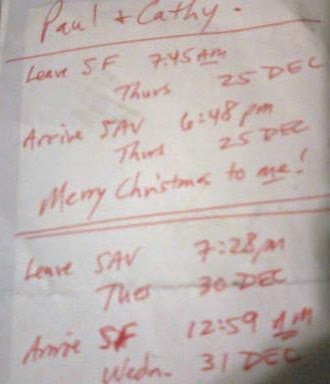 Paul + Cathy.
Leave SF 7:45 AM
Thurs 25 DEC
Arrive SAV 6:48 pm
Thurs 25 DEC
Merry Christmas to me!
Leave SAV 7:28pm
Tues 30 DEC
Arrive SF 12:59 AM
Wedn. 31 DEC